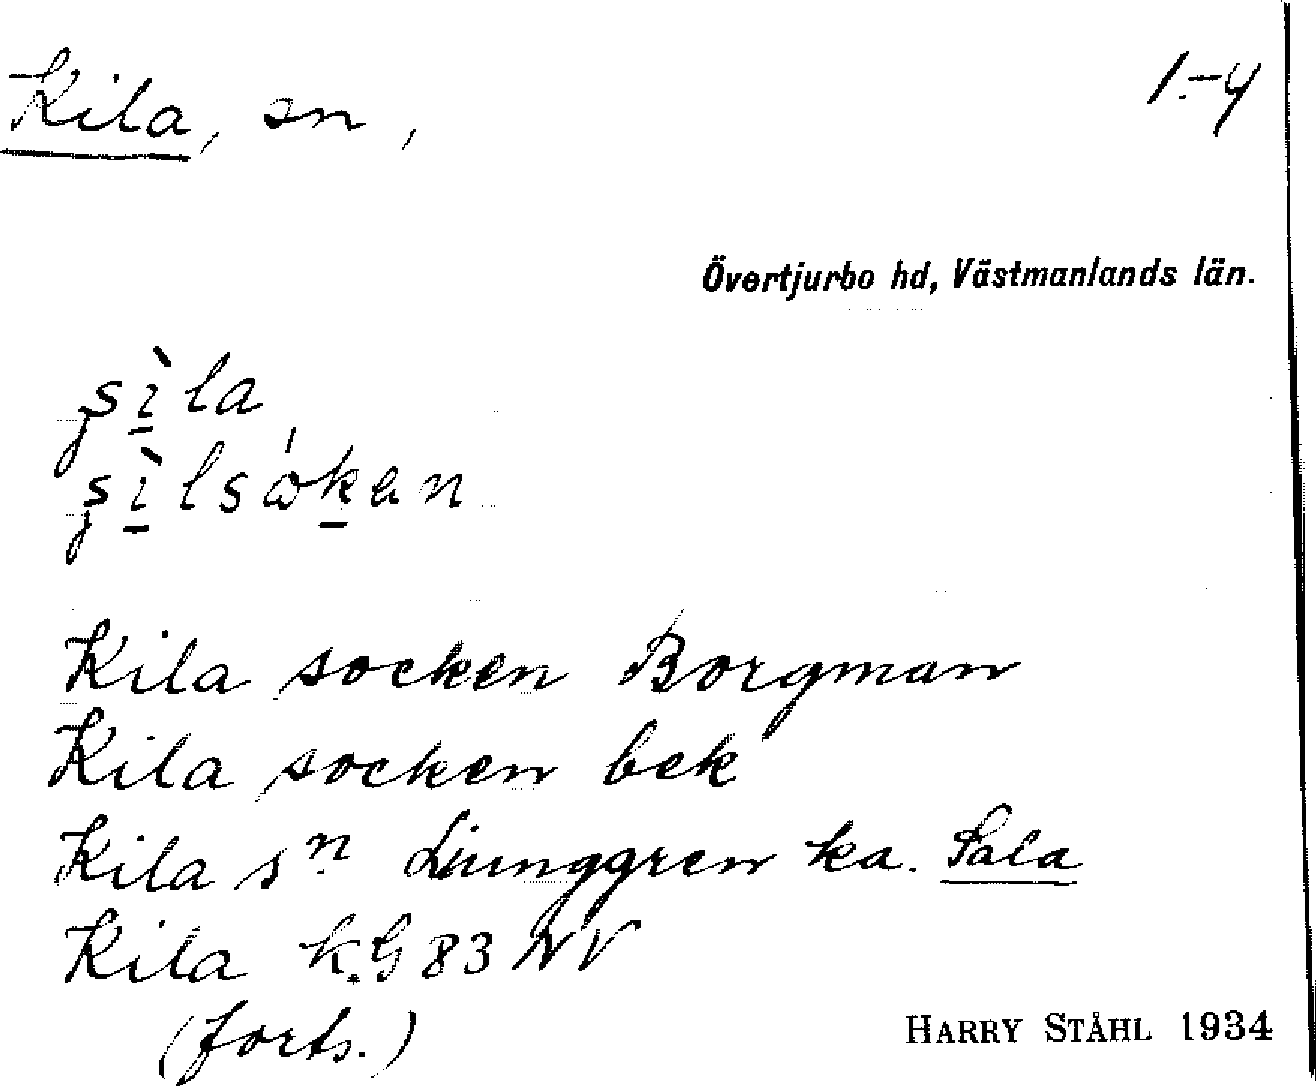 Kila, sn,
1.-4
Övertjurbo hd, Västmanlands län.
Kila socken Borgman
Kila socken bek
Kila sn Ljunggren ka. Sala
Kila k. G 83 NV
(forts.)
HARRY STÅHL 1934